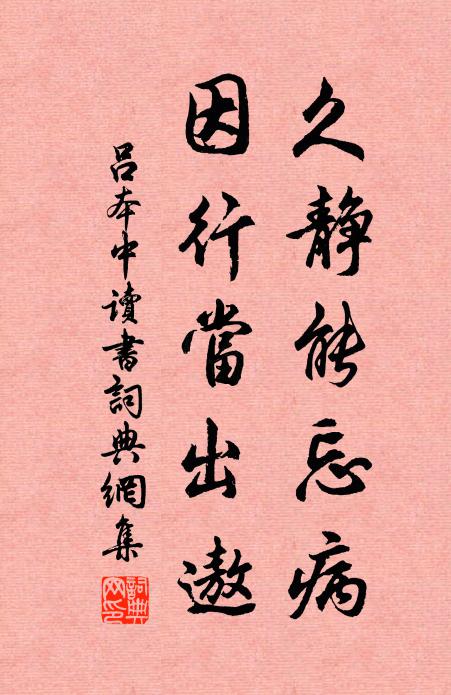 久静能忘病
因行當出遨
吕本中讀書詞典網集
詞典網印